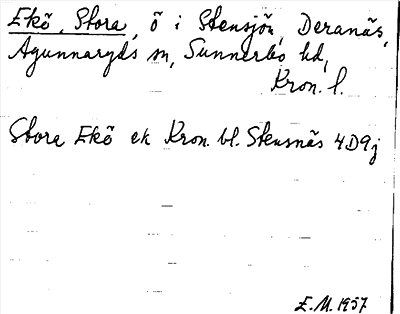 Ekö, Stora, ö i Stensjön, Deranäs,
Agunnaryds sn, Sunnerbo hd,
Kron. l.
Stora Ekö ek Kron. bl. Stensnäs 4D9j
E.M. 1957